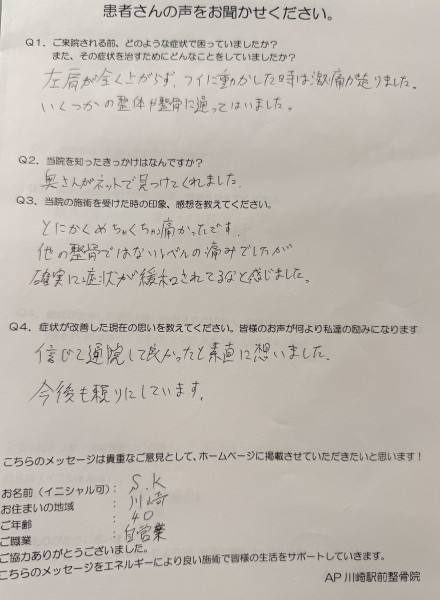 患者さんの声をお聞かせください。
Q1. ご来院される前、どのような症状で困っていましたか?
また、その症状を治すためにどんなことをしていましたか?
左肩が全く上がらず、フイに動かした時は激痛が走りました。
いくつかの整体や整骨に通ってはいました。
Q2. 当院を知ったきっかけはなんですか?
奥さんがネットで見つけてくれました。
Q3. 当院の施術を受けた時の印象、感想を教えてください。
とにかくめちゃくちゃ痛かったです。
他の整骨ではないレベルの痛みでしたが
確実に症状が緩和されてるなと感じました。
Q4. 症状が改善した現在の思いを教えてください。皆様のお声が何より私達の励みになります
信じて通院して良かったと素直に想いました。
今後も頼りにしています。
こちらのメッセージは貴重なご意見として、ホームページに掲載させていただきたいと思います!
お名前(イニシャル可): S.K
お住まいの地域 : 川崎
ご年齢 : 40
ご職業 : 自営業
ご協力ありがとうございました。
こちらのメッセージをエネルギーにより良い施術で皆様の生活をサポートしていきます。
AP 川崎駅前整骨院